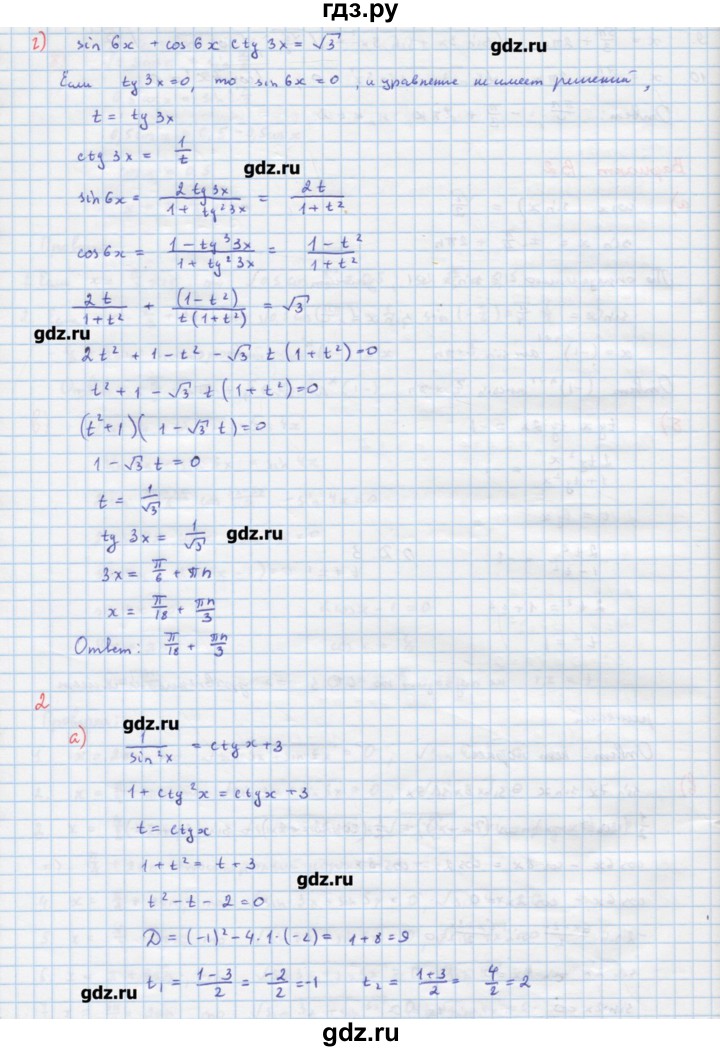 гдз.ру
г) sin 6x + cos 6x ctg 3x = √3
gdz.ru
Если tg 3x = 0, то sin 6x = 0, и уравнение не имеет решений,
t = tg 3x
ctg 3x = 1/t
gdz.ru
sin 6x = 2 tg 3x / (1 + tg² 3x) = 2t / (1 + t²)
cos 6x = (1 - tg³ 3x) / (1 + tg² 3x) = (1 - t²) / (1 + t²)
2t / (1 + t²) + (1 - t²) / (t (1 + t²)) = √3
gdz.ru
2t² + 1 - t² - √3 t (1 + t²) = 0
t² + 1 - √3 t (1 + t²) = 0
(t² + 1)(1 - √3 t) = 0
1 - √3 t = 0
t = 1/√3
tg 3x = 1/√3
gdz.ru
3x = π/6 + πn
x = π/18 + πn/3
Ответ: π/18 + πn/3
2
gdz.ru
а) 1 / sin² x = ctg x + 3
1 + ctg² x = ctg x + 3
t = ctg x
1 + t² = t + 3
gdz.ru
t² - t - 2 = 0
D = (-1)² - 4 · 1 · (-2) = 1 + 8 = 9
t₁ = (1 - 3)/2 = -2/2 = -1 t₂ = (1 + 3)/2 = 4/2 = 2
gdz.ru
gdz.ru